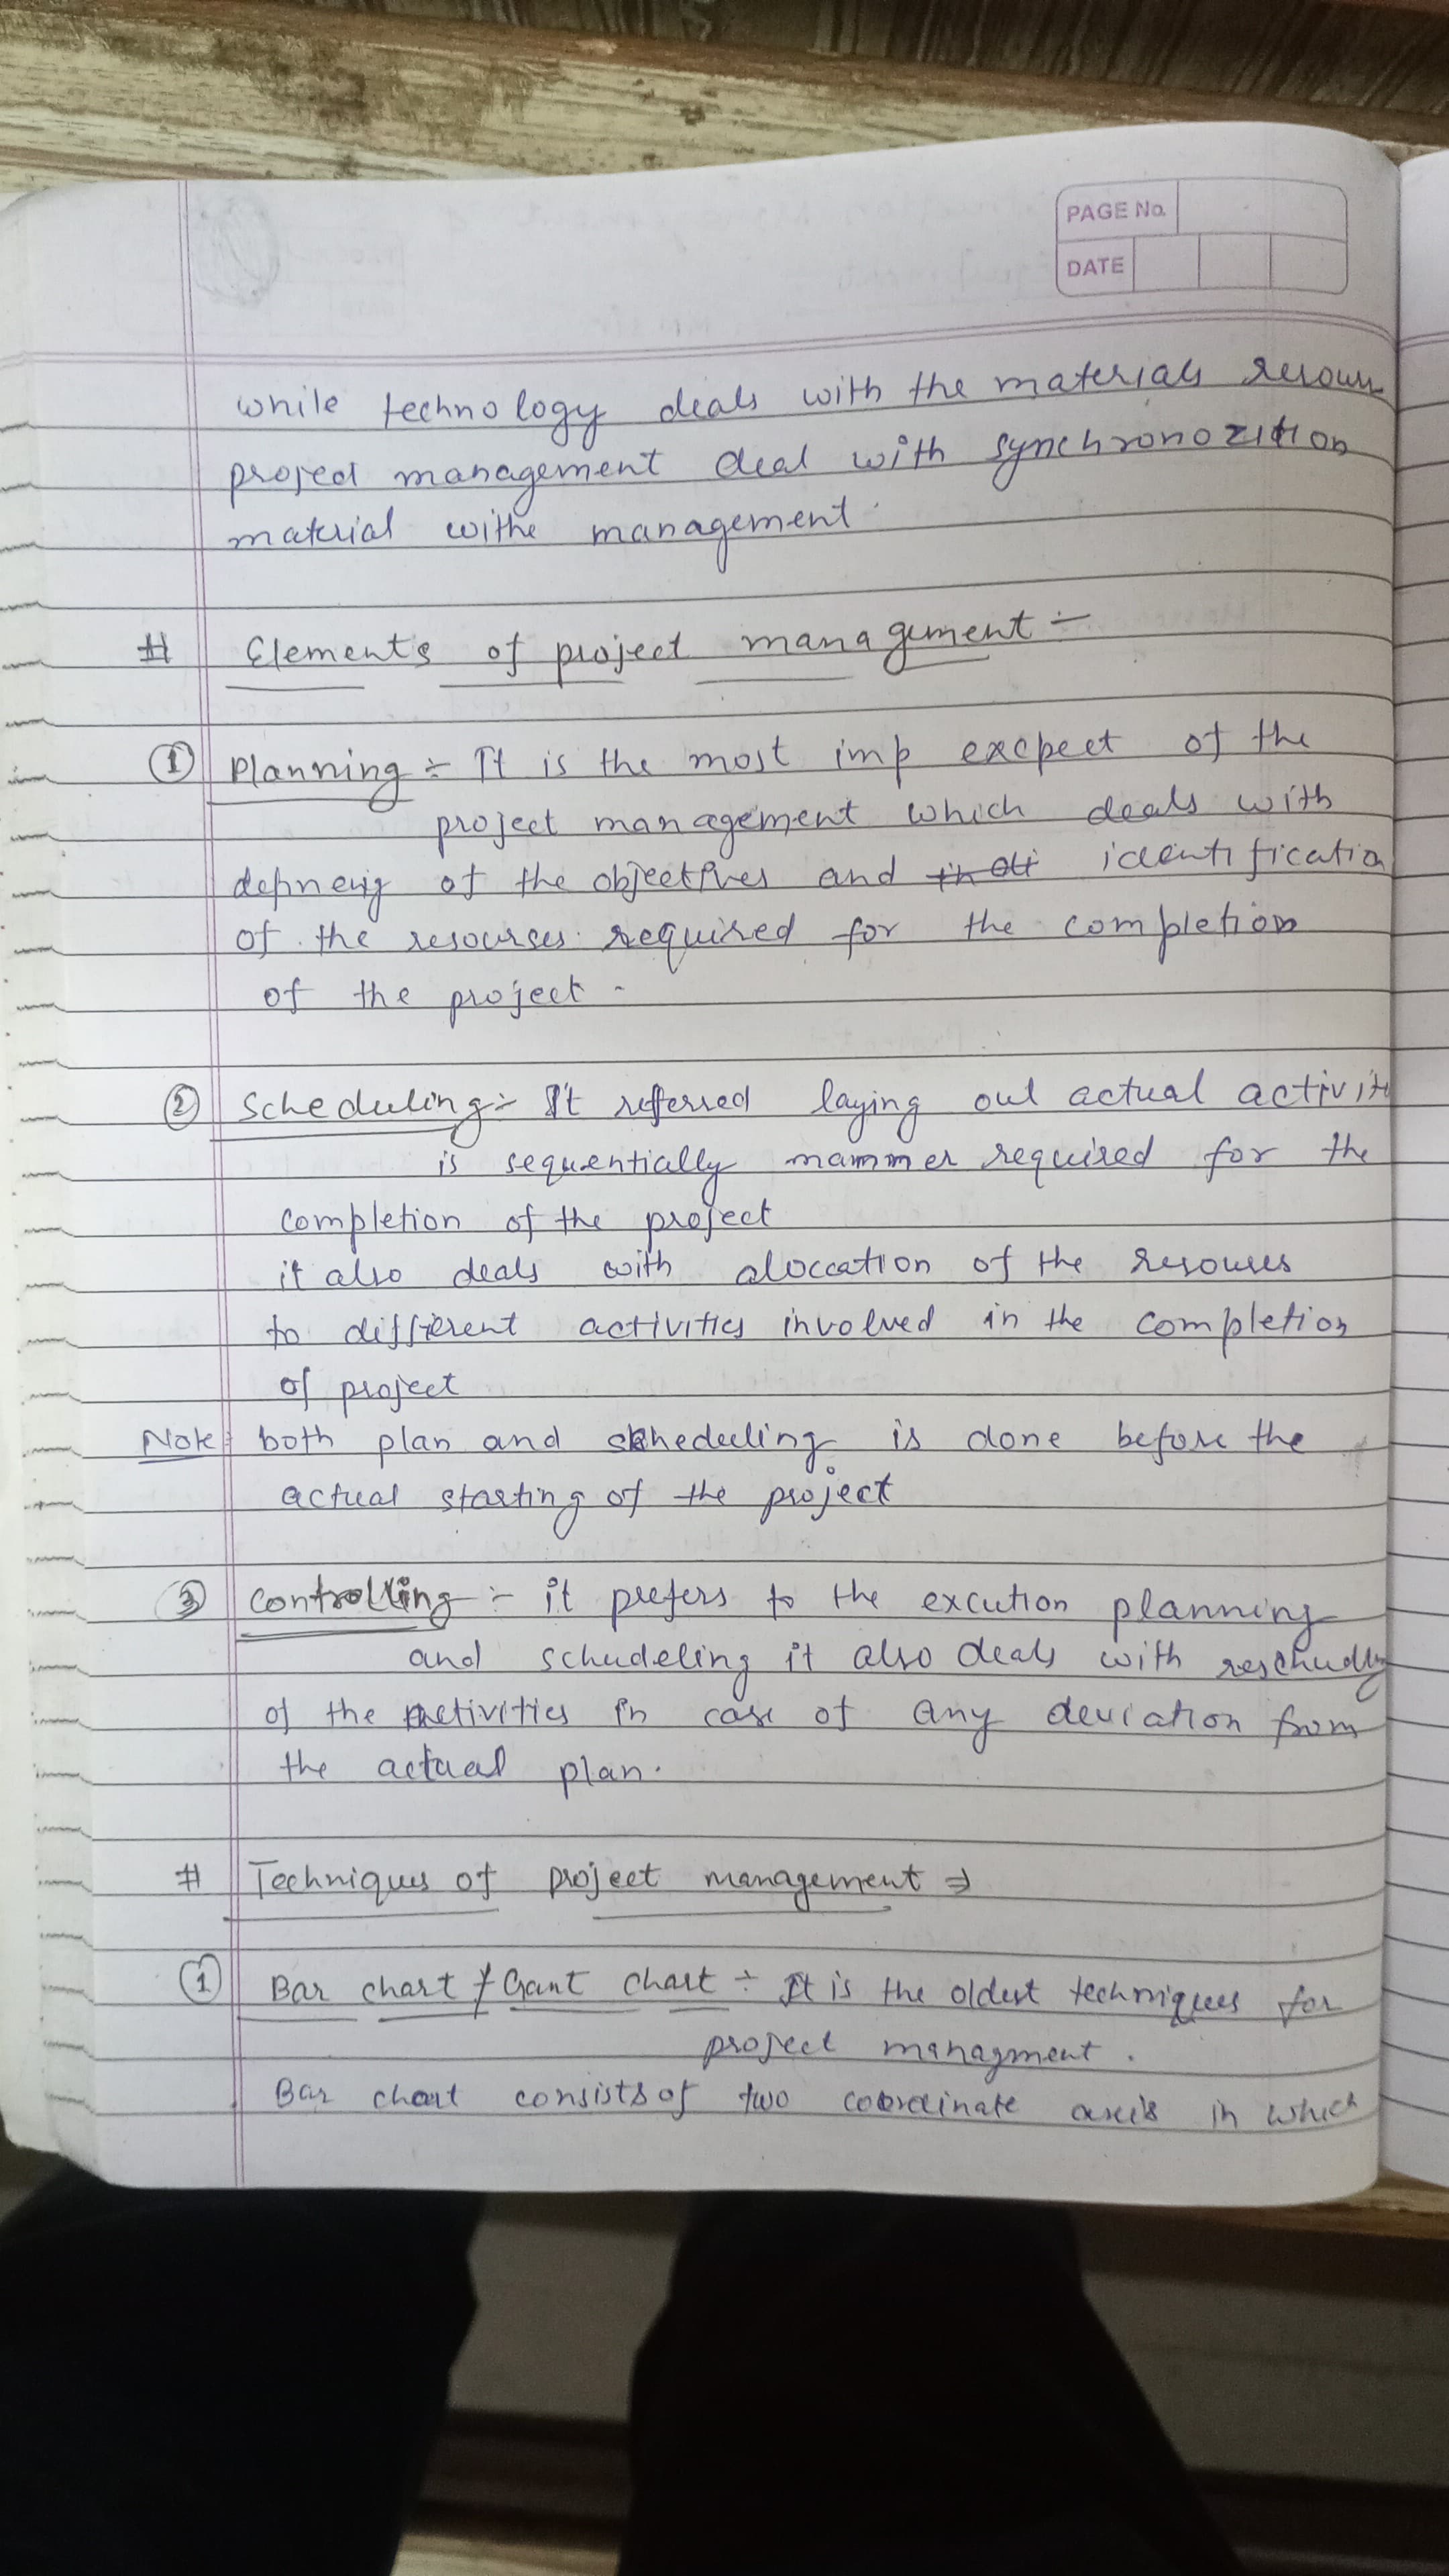 PAGE No.
DATE
while technology deals with the materials
project management deal with synchronozition
material withe management.
# Elements of project management :-
① Planning :- It is the most imp excpect of the
project management which deals with
of the objectives and identification
of the resourses required for the completion
of the project.
② Scheduling :- It referred laying out actual
is sequentially mammer required for the
completion of the project
it also deals with aloccation of the resourses
to different activities involved in the completion
of project
Note: both plan and scheduling is done before the
actual starting of the project
③ Controlling :- it prefers to the excution planning
and schudeling it also deals with
of the activities in case of any deviation from
the actual plan.
# Techniques of project management ⇒
① Bar chart / Gant chart :- It is the oldest techniques for
project managment.
Bar chart consists of two coordinate axis in which